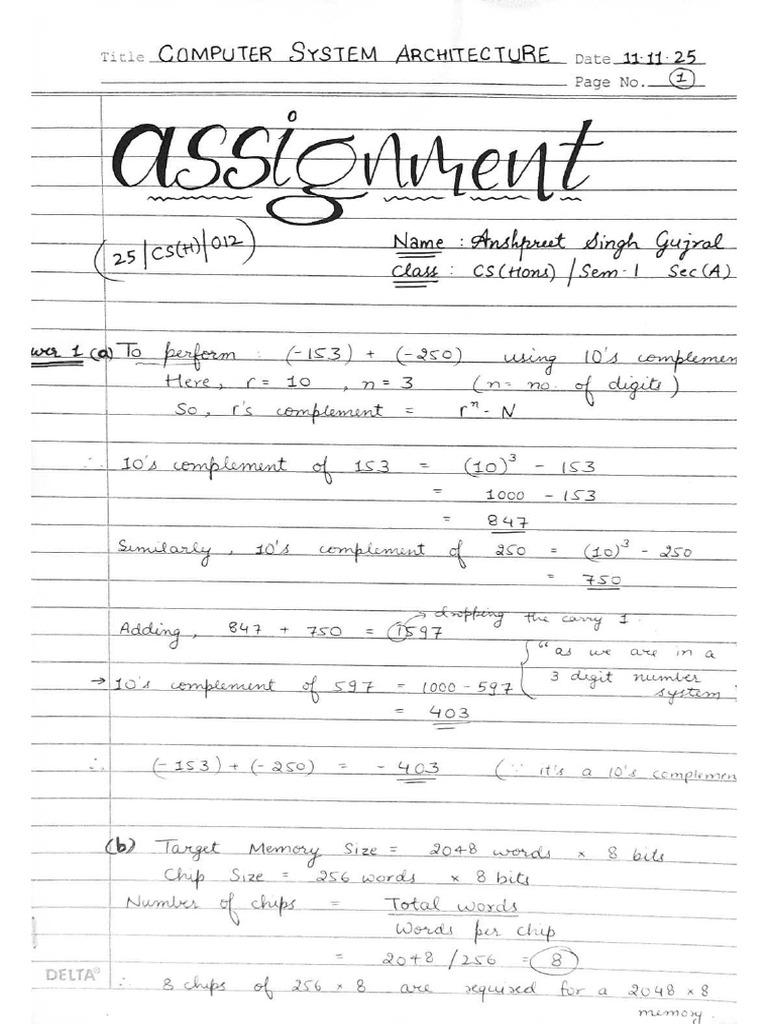 Title COMPUTER SYSTEM ARCHITECTURE Date 11.11.25
Page No. 1
assignment
(25/CS(H)/012)
Name : Anshpreet Singh Gujral
Class : CS(Hons) / Sem-1 Sec(A)
wer 1 (a) To perform : (-153) + (-250) using 10's complemen
Here, r = 10 , n = 3 (n = no. of digits)
So, r's complement = rⁿ - N
∴ 10's complement of 153 = (10)³ - 153
= 1000 - 153
= 847
Similarly, 10's complement of 250 = (10)³ - 250
= 750
→ dropping the carry 1.
Adding, 847 + 750 = 1597
"as we are in a
3 digit number
system
→ 10's complement of 597 = 1000 - 597
= 403
∴ (-153) + (-250) = - 403 (∵ it's a 10's complemen
(b) Target Memory Size = 2048 words × 8 bits
Chip Size = 256 words × 8 bits
Number of chips = Total words
Words per chip
= 2048 / 256 = 8
DELTA®
∴ 8 chips of 256 × 8 are required for a 2048 × 8
memory.